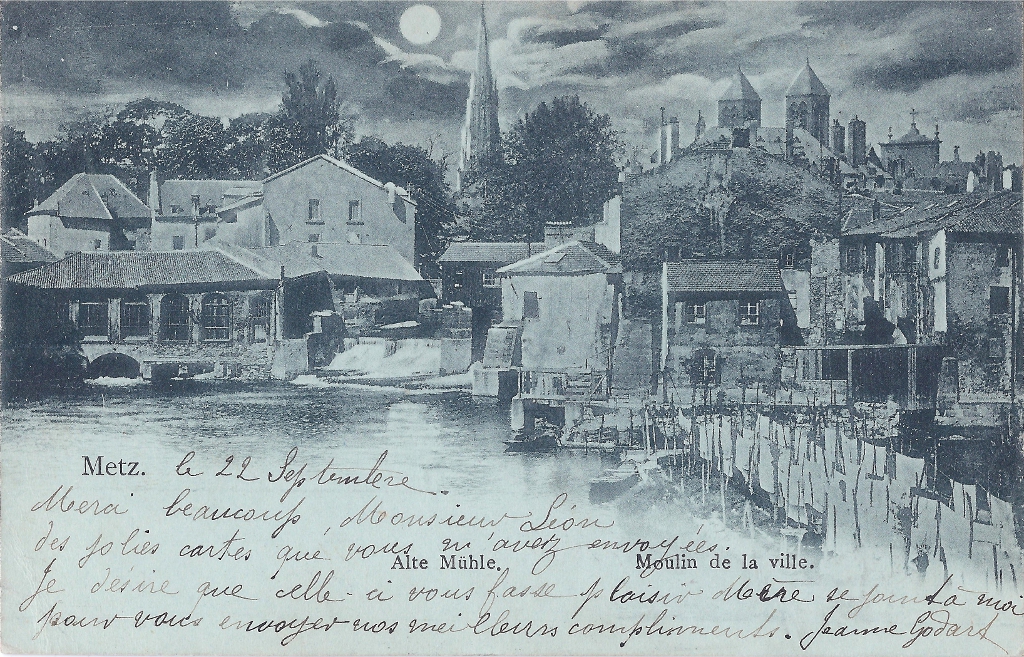 Metz. le 22 Septembre.
Merci beaucoup, Monsieur Léon
des jolies cartes que vous m'avez envoyées.
Alte Mühle. Moulin de la ville.
Je désire que celle-ci vous fasse plaisir Mère se joint à moi
pour vous envoyer nos meilleurs compliments. Jeanne Godart